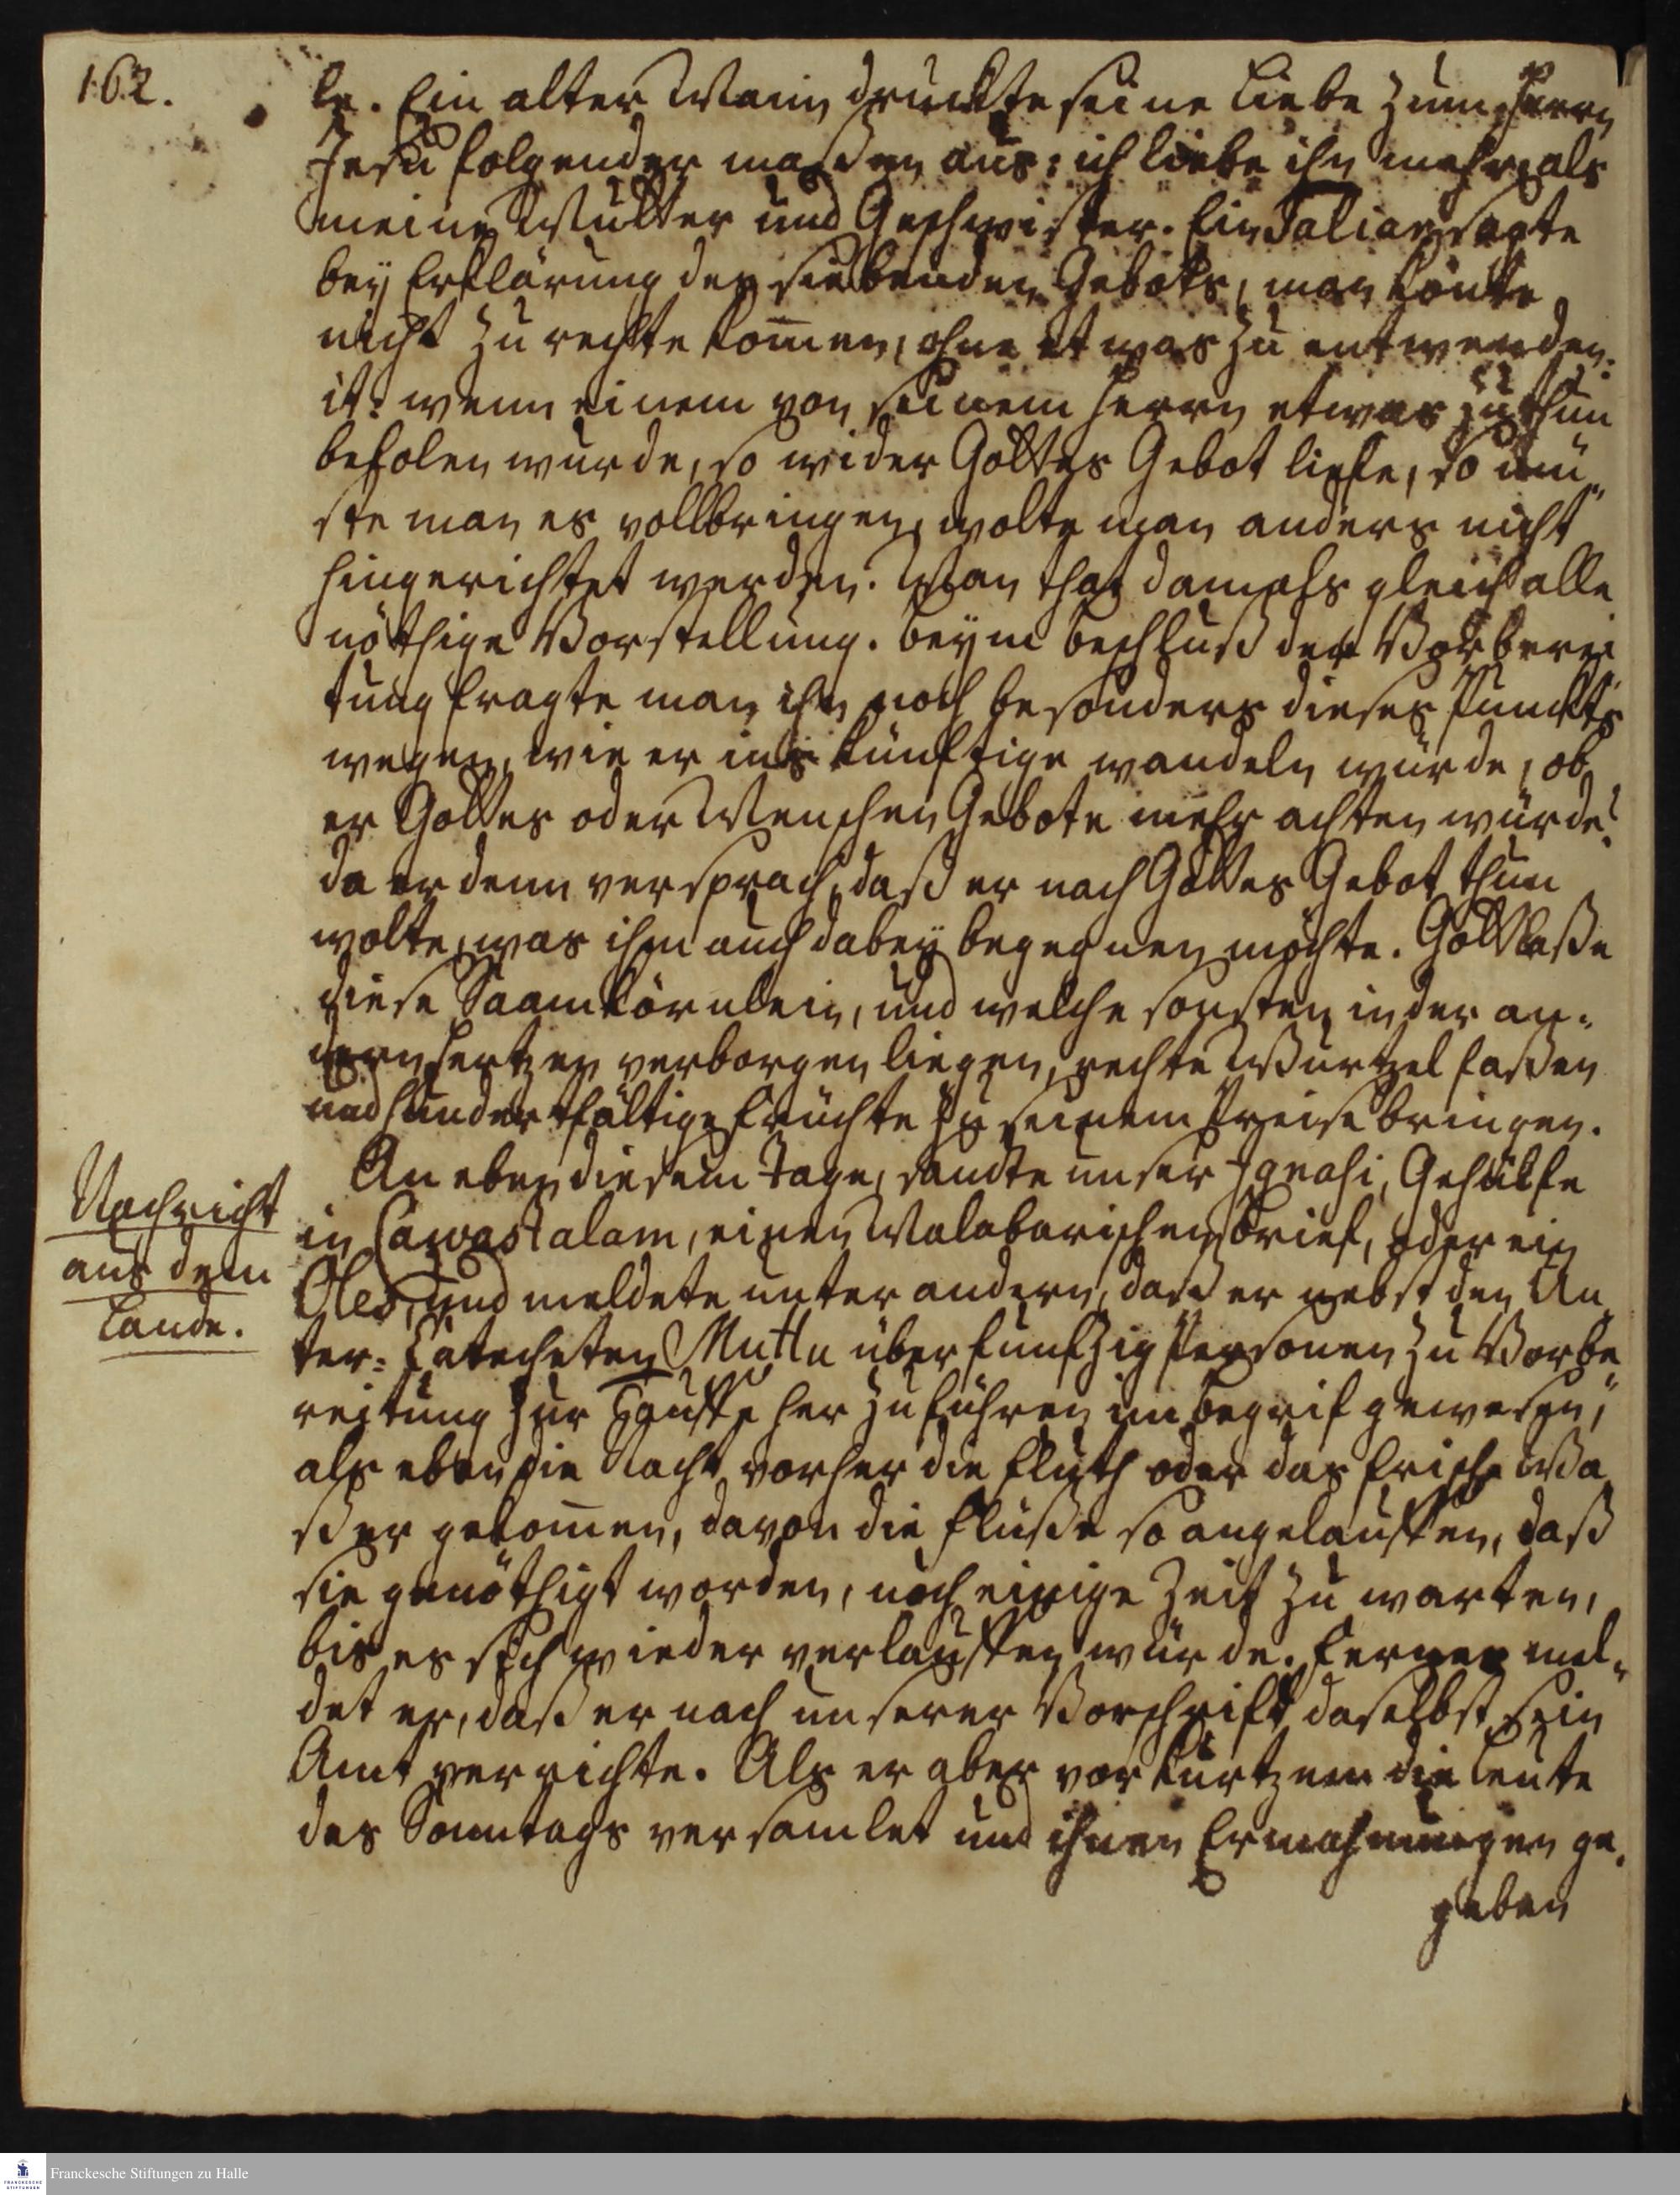 162.
le. Ein alter Mann druckte seine Liebe zum Herrn
Jesu folgender maßen aus: ich liebe ihn mehr als
meine Mutter und Geschwister. Ein Taliar sagte
bey Erklärung des siebenden Gebots, man könte
nicht zu rechte kom̄en, ohne etwas zu entwenden.
it: wenn einem von seinem Herrn etwas zu thun
befolen würde, so wider Gottes Gebot liefe, so mü„
ste man es vollbringen, wolte man anders nicht
hingerichtet werden. Man that damals gleich alle
nöthige Vorstellung. Beym Beschluß der Vorberei
tung fragte man ihn noch besonders dieses Puncts
wegen, wie er ins künftige wandeln würde, ob
er Gottes oder Menschen Gebote mehr achten würde?
da er denn versprach, daß er nach Gottes Gebot thun
wolte, was ihm auch dabey begegnen möchte. Gott laße
diese Saamkörnlein, und welche sonsten in der an„
dern Hertzen verborgen liegen, rechte Wurtzel faßen
und hundertfältige Früchte zu seinem Preise bringen.
Nachricht
aus dem
Lande.
An eben diesem Tage, sandte unser Ignasi, Gehülfe
in Cawastalam, einen Malabarischen Brief, oder ein
Oles, und meldete unter andern, daß er nebst den Un„
ter-Catecheten Muttu über funfzig Personen zu Vorbe„
reitung zur Tauffe her zu führen im Begrif gewesen,
als eben die Nacht vorher die Fluth oder das frische Wa„
ßer gekom̄en, davon die Flüße so angelauffen, daß
sie genöthigt worden, noch einige Zeit zu warten,
bis es sich wieder verlauffen würde. Ferner mel„
det er, daß er nach unserer Vorschrift daselbst sein
Amt verrichte. Als er aber vor kurtzem die Leute
des Sonntags versamlet und ihnen Ermahnungen ge„
geben
Franckesche Stiftungen zu Halle